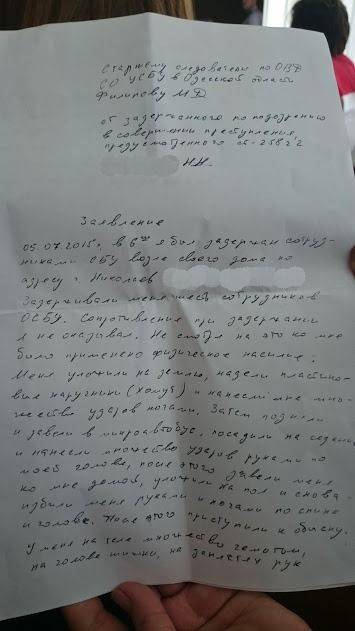 Старшему следователю по ОВД
СО УСБУ в Одесской области
Филипову М.Д.
от задержанного по подозрению
в совершении преступления,
предусмотренного ст-258 ч 2
Н.Н.
Заявление
05.07.2015г. в 6 я был задержан сотруд-
никами СБУ возле своего дома по
адресу г. Николаев
Задерживали меня шесть сотрудников
ОСБУ. Сопротивление при задержании
я не оказывал. Не смотря на это ко мне
было применено физическое насилие.
Меня уложили на землю, надели пластико-
вые наручники (хомут) и нанесли мне мно-
жество ударов ногами. Затем подняли
и завели в микроавтобус, посадили на сидение
и нанесли множество ударов руками по
моей голове, после этого завели меня
ко мне домой, уложили на пол и снова
избили меня руками и ногами по спине
и голове. После этого приступили к обыску.
У меня на теле множество гематом,
на голове шишки, на запястях рук